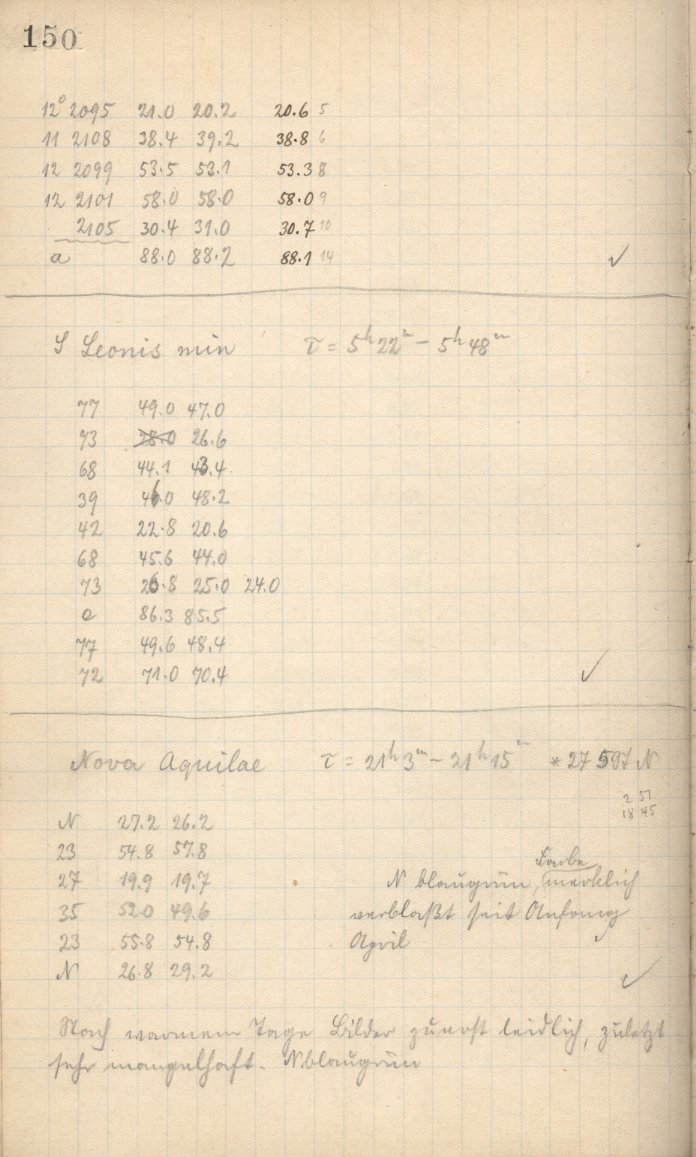 150
12⁰ 2095 21.0 20.2 20.6 5
11 2108 38.4 39.2 38.8 6
12 2099 53.5 53.1 53.3 8
12 2101 58.0 58.0 58.0 9
2105 30.4 31.0 30.7 10
a 88.0 88.2 88.1 14 ✓
S Leonis min τ = 5ʰ22ᵐ – 5ʰ48ᵐ
77 49.0 47.0
73 28.0 26.6
68 44.1 43.4
39 46.0 48.2
42 22.8 20.6
68 45.6 44.0
73 26.8 25.0 24.0
e 86.3 85.5
77 49.6 48.4
72 71.0 70.4 ✓
Nova Aquilae τ = 21ʰ3ᵐ – 21ʰ15ᵐ * 27 N
2 51
18 45
N 27.2 26.2
23 54.8 57.8
27 19.9 19.7
35 52.0 49.6
23 55.8 54.8
N 26.8 29.2
N blaugrün, Farbe merklich
verblaßt seit Anfang
April ✓
Nach warmem Tage Bilder zuerst leidlich, zuletzt
sehr mangelhaft. N blaugrün